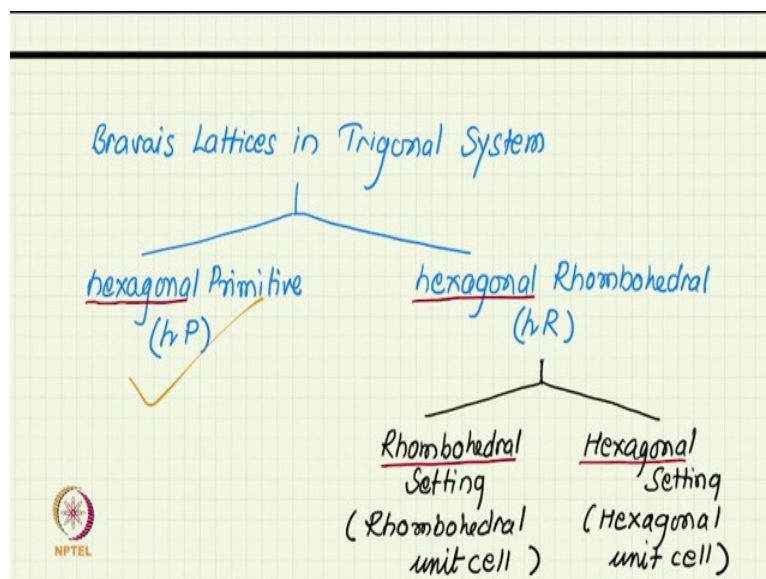 Bravais Lattices in Trigonal System
hexagonal Primitive
(hP)
hexagonal Rhombohedral
(hR)
Rhombohedral
Setting
(Rhombohedral
unit cell)
Hexagonal
Setting
(Hexagonal
unit cell)
NPTEL